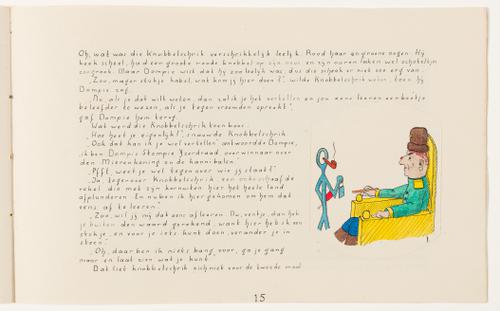 Oh, wat was die Knobbelschrik verschrikkelijk leelijk. Rood haar en groene oogen. Hij
keek scheel, had een groote ronde knobbel op zijn neus en zijn ooren leken wel schotels,
zoo groot. Maar Dompie wist dat hij zoo leelijk was, dus die schrok er niet zoo erg van.
"Zoo, mager stukje kabel, wat kom jij hier doen?", wilde Knobbelschrik weten, toen hij
Dompie zag.
"Nu, als je dat wilt weten, dan zal ik je het vertellen en jou eens leeren een beetje
beleefder te wezen, als je tegen vreemden spreekt",
gaf Dompie hem terug.
Wat werd die Knobbelschrik toen boos.
"Hoe heet je eigenlijk?", snauwde Knobbelschrik
"Ook dat kan ik je wel vertellen" antwoordde Dompie,
ik ben Dompie Stompie IJzerdraad, overwinnaar over
den Mierenkoning en de kannibalen.
"Pfft, weet je wel tegenover wie jij staat?"
"Ja tegenover Knobbelschrik, een roover, de
rekel die met zijn kornuiten hier het heele land
afplunderen. En nu ben ik hier gekomen om hem dat
eens af te leeren".
"Zoo, wil jij mij dat eens afleeren. Du, ventje, dan heb
je buiten den waard gerekend, want hier heb ik een
stokje, en voor je iets kunt doen, verander je in
steen".
"Oh, daar ben ik niets bang voor, ga je gang
maar en laat zien wat je kunt"
Dat liet Knobbelschrik zich niet voor de tweede maal
15